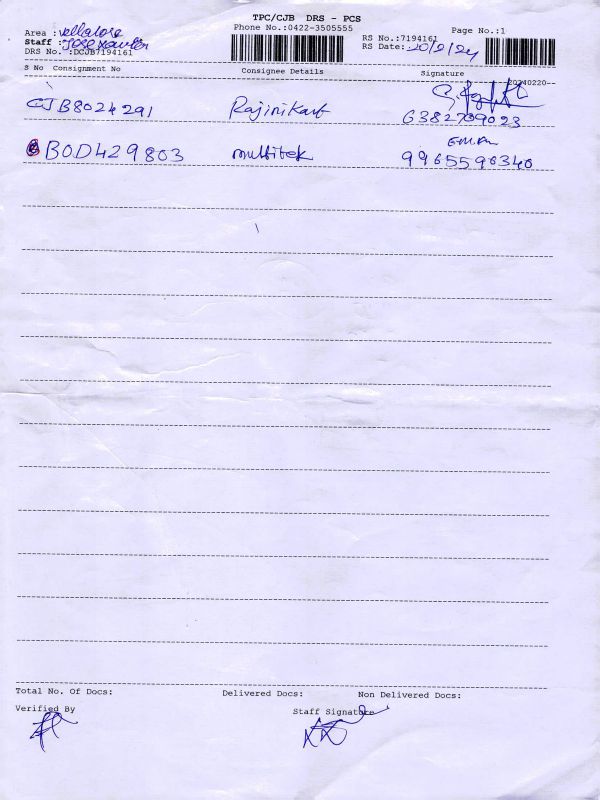 TPC/CJB DRS - PCS
Area : vellalore Phone No.:0422-3505555 RS No.:7194161 Page No.:1
Staff : Jose RS Date: 20/2/24
DRS No. :DCJB7194161
S No Consignment No Consignee Details Signature 20240220--
CJB8024291 Rajinikant
6382709023
BOD429803 multitek 9965596340
Total No. Of Docs: Delivered Docs: Non Delivered Docs:
Verified By Staff Signature